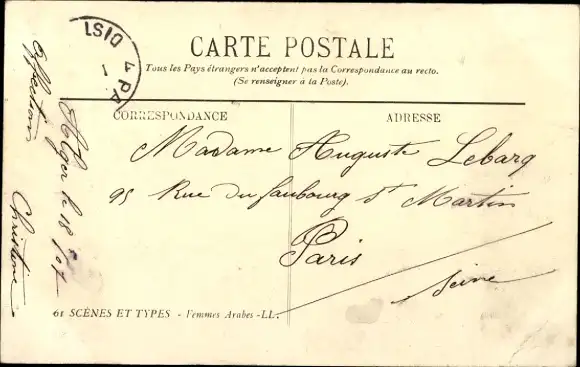 CARTE POSTALE
Tous les Pays étrangers n'acceptent pas la Correspondance au recto.
(Se renseigner à la Poste).
CORRESPONDANCE
ADRESSE
Madame Auguste Lebarq
95 Rue du faubourg St Martin
Paris
Seine
61 SCÈNES ET TYPES - Femmes Arabes - LL.
Alger le 18
Affection
Christine
DIST
4 PA